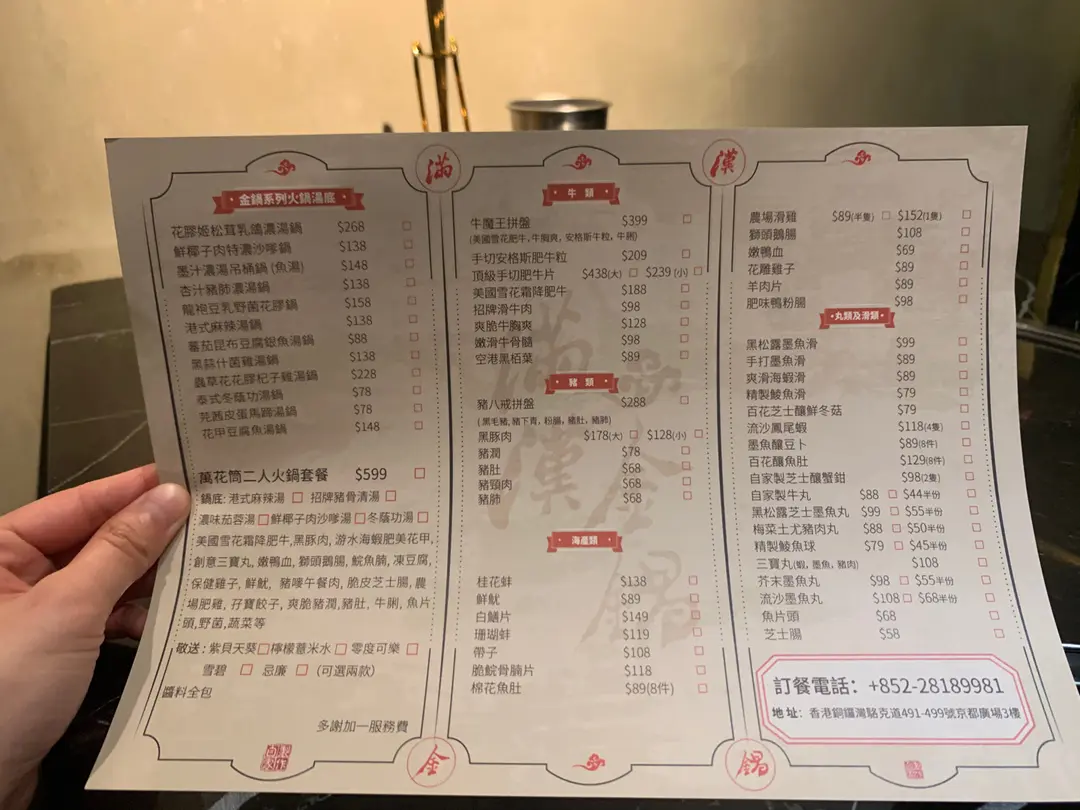 滿
漢
金鍋系列火鍋湯底
花膠姬松茸乳鴿濃湯鍋 $268
鮮椰子肉特濃沙嗲鍋 $138
墨汁濃湯吊桶鍋 (魚湯) $148
杏汁豬肺濃湯鍋 $138
龍袍豆乳野菌花膠鍋 $158
港式麻辣湯鍋 $138
蕃茄昆布豆腐銀魚湯鍋 $88
黑蒜什菌雞湯鍋 $138
蟲草花花膠杞子雞湯鍋 $228
泰式冬蔭功湯鍋 $78
芫茜皮蛋馬蹄湯鍋 $78
花甲豆腐魚湯鍋 $148
萬花筒二人火鍋套餐 $599
鍋底: 港式麻辣湯 招牌豬骨清湯
濃味茄蓉湯 鮮椰子肉沙嗲湯 冬蔭功湯
美國雪花霜降肥牛,黑豚肉, 游水海蝦肥美花甲,
創意三寶丸, 嫩鴨血, 獅頭鵝腸, 鯇魚腩, 凍豆腐,
保健雞子, 鮮魷, 豬嘜午餐肉, 脆皮芝士腸, 農
場肥雞, 孖寶餃子, 爽脆豬潤, 豬肚, 牛脷, 魚片
頭,野菌, 蔬菜等
敬送: 紫貝天葵 檸檬薏米水 零度可樂
雪碧 忌廉 (可選兩款)
醬料全包
多謝加一服務費
牛 類
牛魔王拼盤 $399
(美國雪花肥牛, 牛胸爽, 安格斯牛粒, 牛脷)
手切安格斯肥牛粒 $209
頂級手切肥牛片 $438(大) $239 (小)
美國雪花霜降肥牛 $188
招牌滑牛肉 $98
爽脆牛胸爽 $128
嫩滑牛骨髓 $98
空港黑栢葉 $89
豬 類
豬八戒拼盤 $288
( 黑毛豬, 豬下青, 粉腸, 豬肚, 豬肺)
黑豚肉 $178(大) $128(小)
豬潤 $78
豬肚 $68
豬頸肉 $68
豬肺 $68
海產類
桂花蚌 $138
鮮魷 $89
白鱔片 $149
珊瑚蚌 $119
帶子 $108
脆鯇骨腩片 $118
棉花魚肚 $89(8件)
農場滑雞 $89(半隻) $152(1隻)
獅頭鵝腸 $108
嫩鴨血 $69
花雕雞子 $89
羊肉片 $89
肥味鴨粉腸 $98
丸類及滑類
黑松露墨魚滑 $99
手打墨魚滑 $89
爽滑海蝦滑 $89
精製鯪魚滑 $79
百花芝士釀鮮冬菇 $79
流沙鳳尾蝦 $118(4隻)
墨魚釀豆卜 $89(8件)
百花釀魚肚 $129(8件)
自家製芝士釀蟹鉗 $98(2隻)
自家製牛丸 $88 $44半份
黑松露芝士墨魚丸 $99 $55半份
梅菜土尤豬肉丸 $88 $50半份
精製鯪魚球 $79 $45半份
三寶丸(蝦, 墨魚, 豬肉) $108
芥末墨魚丸 $98 $55半份
流沙墨魚丸 $108 $68半份
魚片頭 $68
芝士腸 $58
訂餐電話: +852-28189981
地址: 香港銅鑼灣駱克道491-499號京都廣場3樓
金
鍋
滿漢金鍋